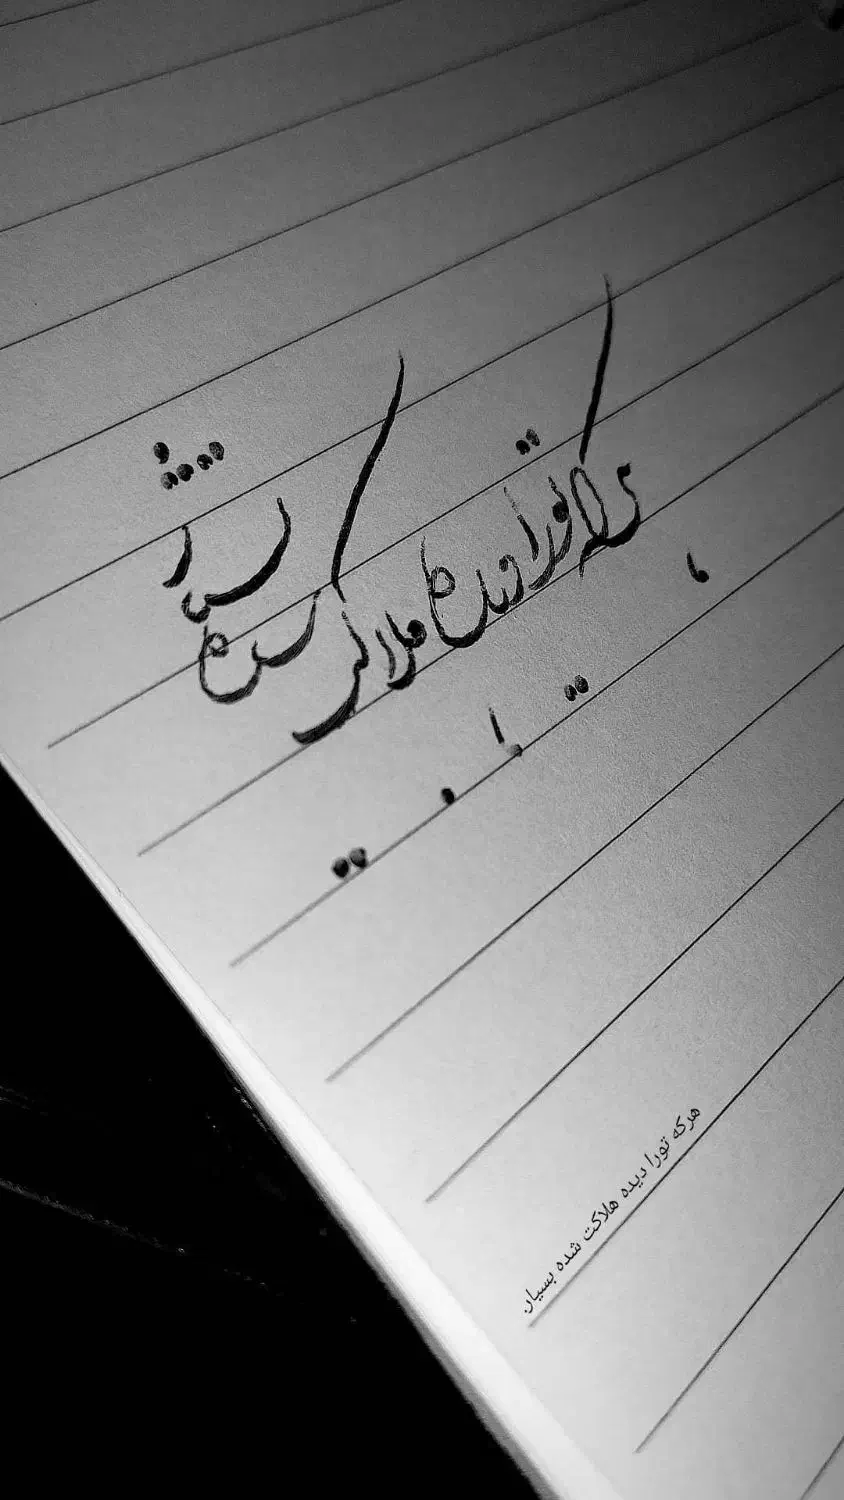 هرکه تورا دیده هلاکت شده بسیار
هرکه تورا دیده هلاکت شده بسیار.